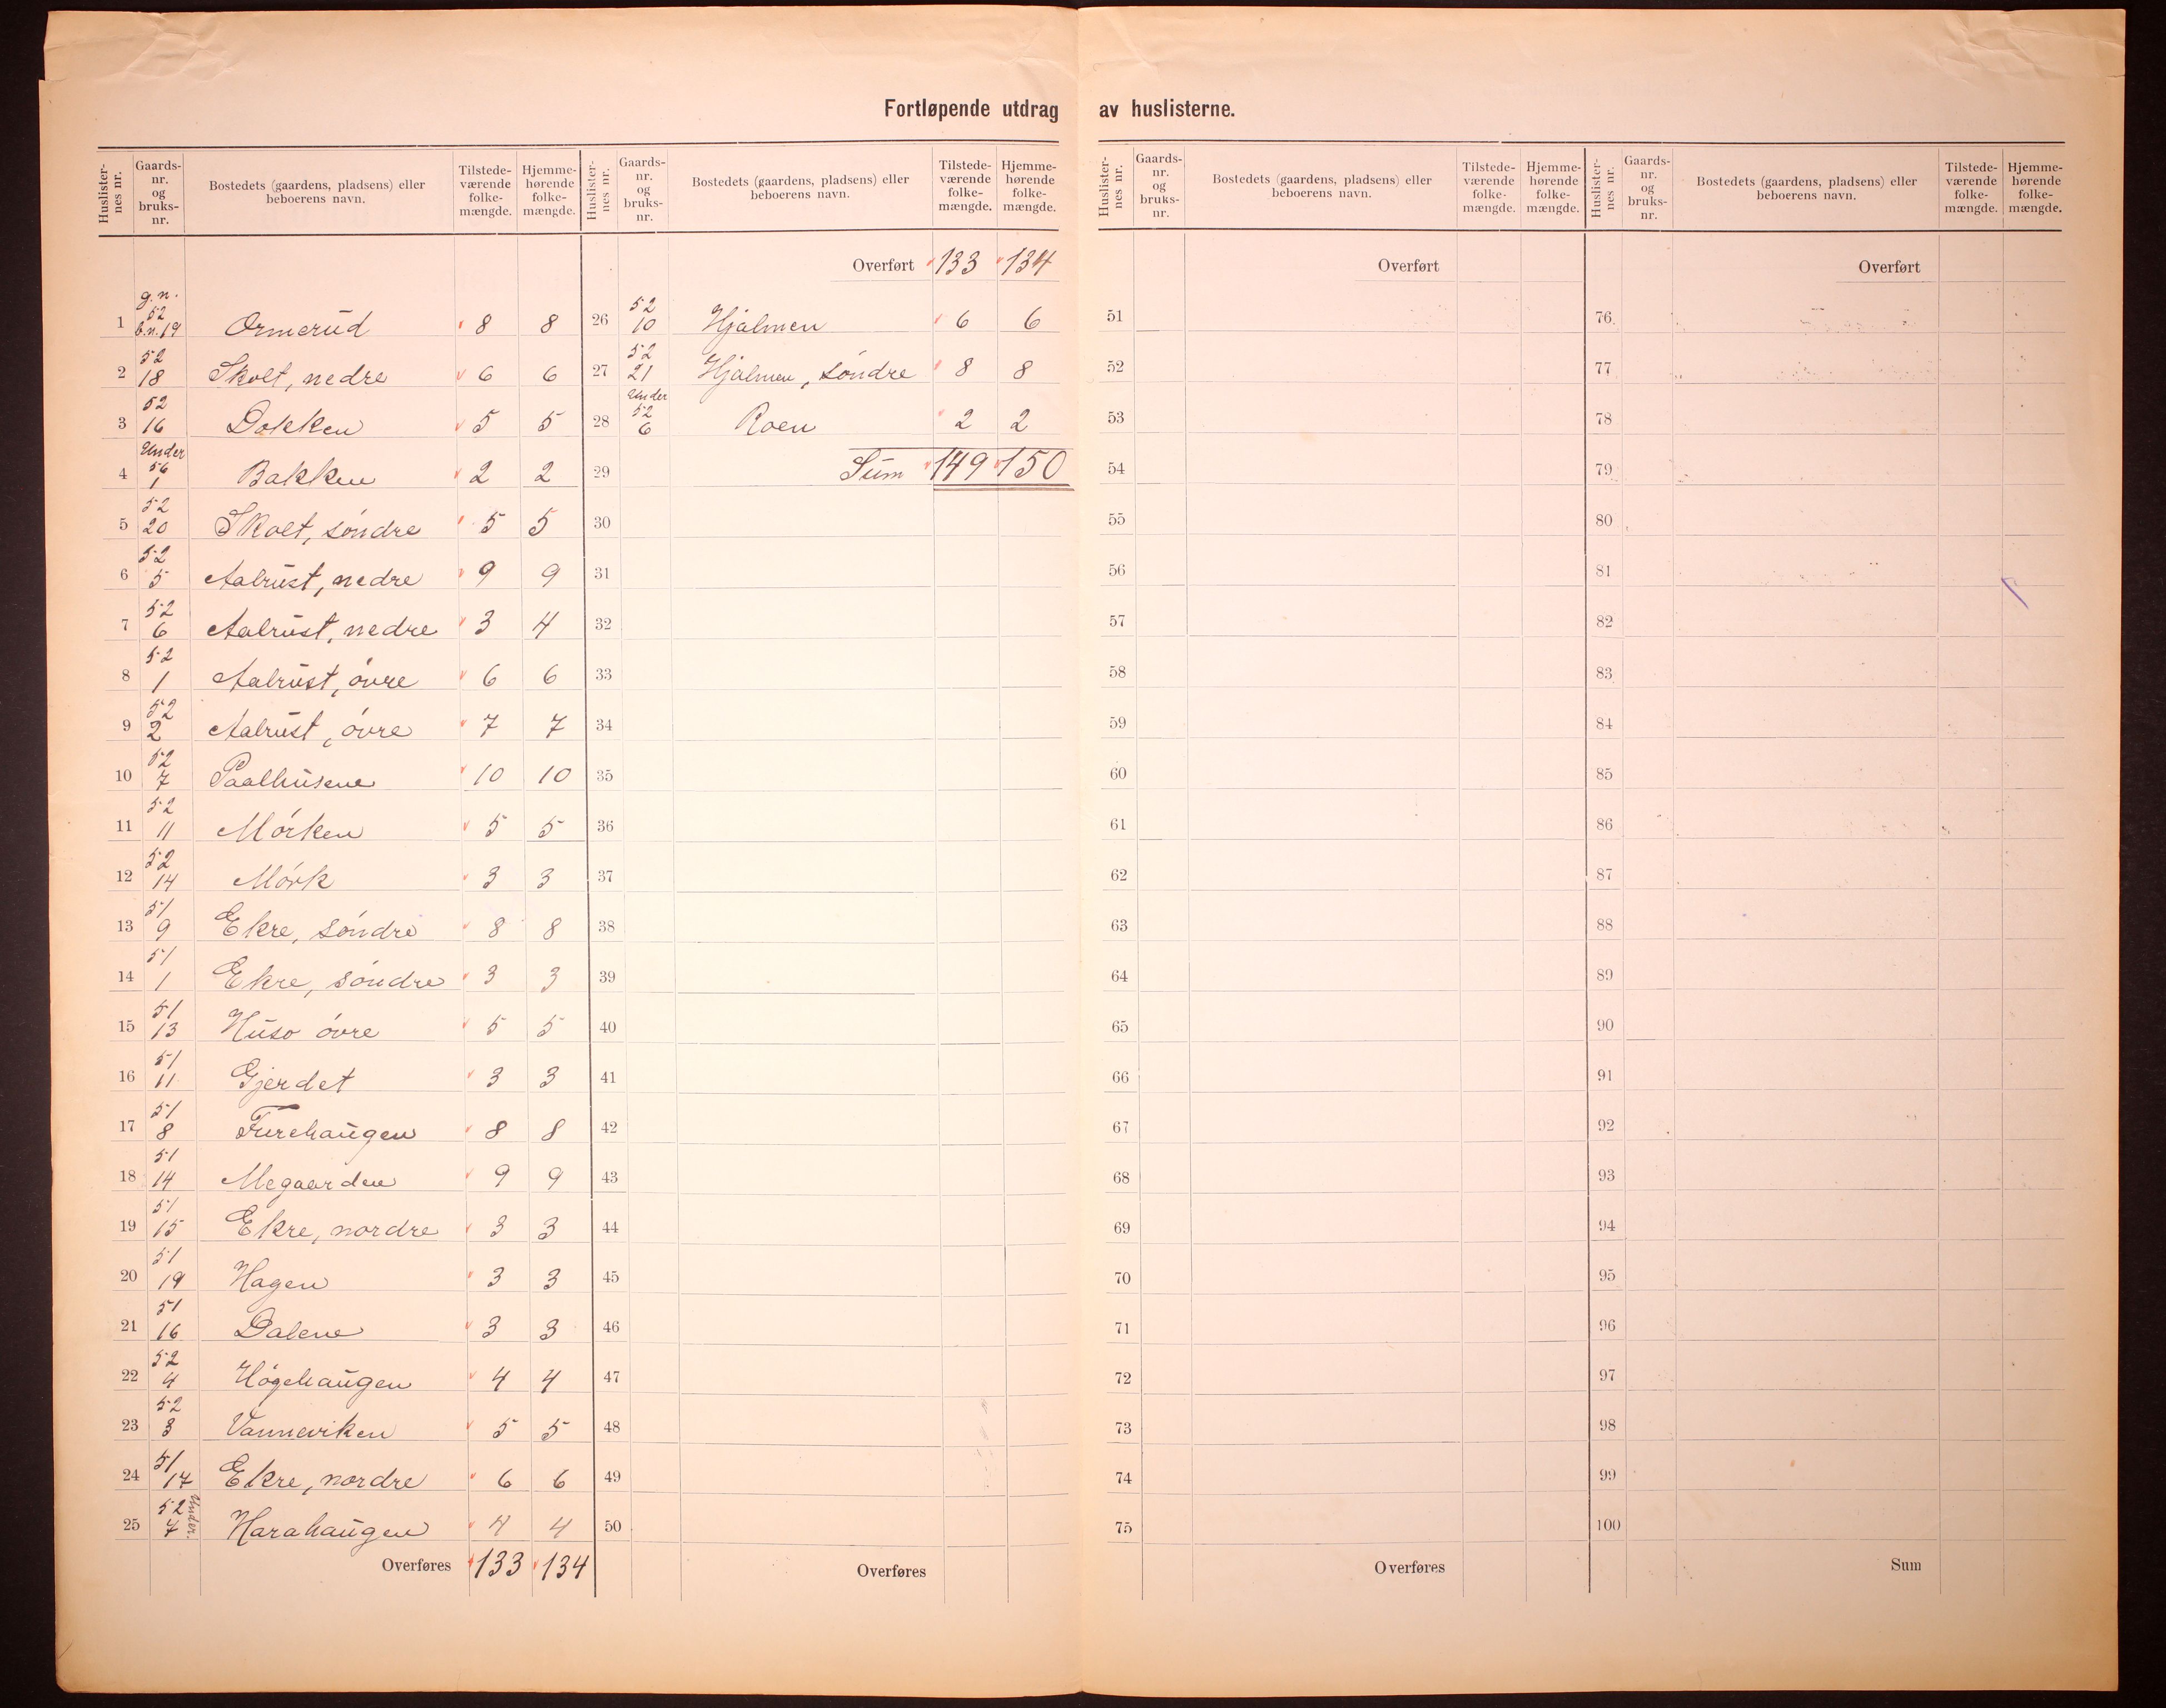 Fortløpende utdrag av huslisterne.
Huslisternes nr. Gaardsnr. og bruksnr. Bostedets (gaardens, pladsens) eller beboerens navn. Tilstedeværende folkemængde. Hjemmehørende folkemængde.
1 g.n. 52 b.n. 19 Ormerud 8 8
2 52 18 Skolt, nedre 6 6
3 52 16 Dokken 5 5
4 Under 56 1 Bakken 2 2
5 52 20 Skolt, söndre 5 5
6 52 5 Aalrust, nedre 9 9
7 52 6 Aalrust, nedre 3 4
8 52 1 Aalrust, övre 6 6
9 52 2 Aalrust, övre 7 7
10 52 7 Paalhusene 10 10
11 52 11 Mörken 5 5
12 52 14 Mörk 3 3
13 51 9 Ekre, söndre 8 8
14 51 1 Ekre, söndre 3 3
15 51 13 Huso övre 5 5
16 51 11 Gjerdet 3 3
17 51 8 Furehaugen 8 8
18 51 14 Megaarden 9 9
19 51 15 Ekre, nordre 3 3
20 51 19 Hagen 3 3
21 51 16 Dalene 3 3
22 52 4 Högehaugen 4 4
23 52 3 Vanneviken 5 5
24 51 17 Ekre, nordre 6 6
25 52 7 Under. Harahaugen 4 4
Overføres 133 134
Huslisternes nr. Gaardsnr. og bruksnr. Bostedets (gaardens, pladsens) eller beboerens navn. Tilstedeværende folkemængde. Hjemmehørende folkemængde.
Overført 133 134
26 52 10 Hjalmen 6 6
27 52 21 Hjalmen, söndre 8 8
28 Under 52 6 Roen 2 2
29 Sum 149 150
30
31
32
33
34
35
36
37
38
39
40
41
42
43
44
45
46
47
48
49
50
Overføres
Huslisternes nr. Gaardsnr. og bruksnr. Bostedets (gaardens, pladsens) eller beboerens navn. Tilstedeværende folkemængde. Hjemmehørende folkemængde.
Overført
51
52
53
54
55
56
57
58
59
60
61
62
63
64
65
66
67
68
69
70
71
72
73
74
75
Overføres
Huslisternes nr. Gaardsnr. og bruksnr. Bostedets (gaardens, pladsens) eller beboerens navn. Tilstedeværende folkemængde. Hjemmehørende folkemængde.
Overført
76
77
78
79
80
81
82
83
84
85
86
87
88
89
90
91
92
93
94
95
96
97
98
99
100
Sum